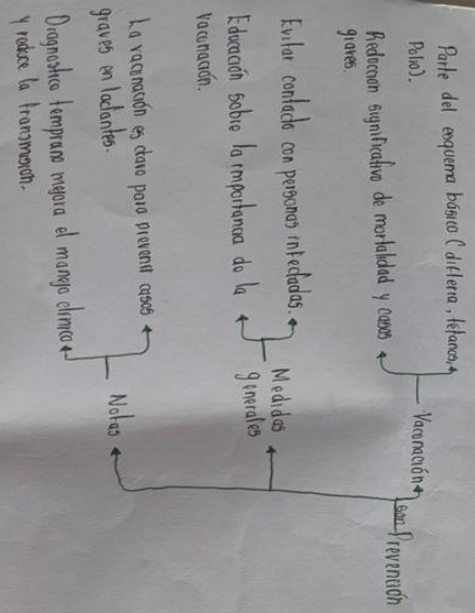 Prevención
son
Vacunación
Parte del esquema básico (difteria, tétanos,
Polio).
Reduccion significativa de mortalidad y casos
graves.
Medidas
generales
Evitar contacto con personas infectadas.
Educación sobre la importancia de la
vacunación.
Notas
La vacunación es clave para prevenir casos
graves en lactantes.
Diagnostico temprano mejora el manejo clínico
y reduce la transmision.